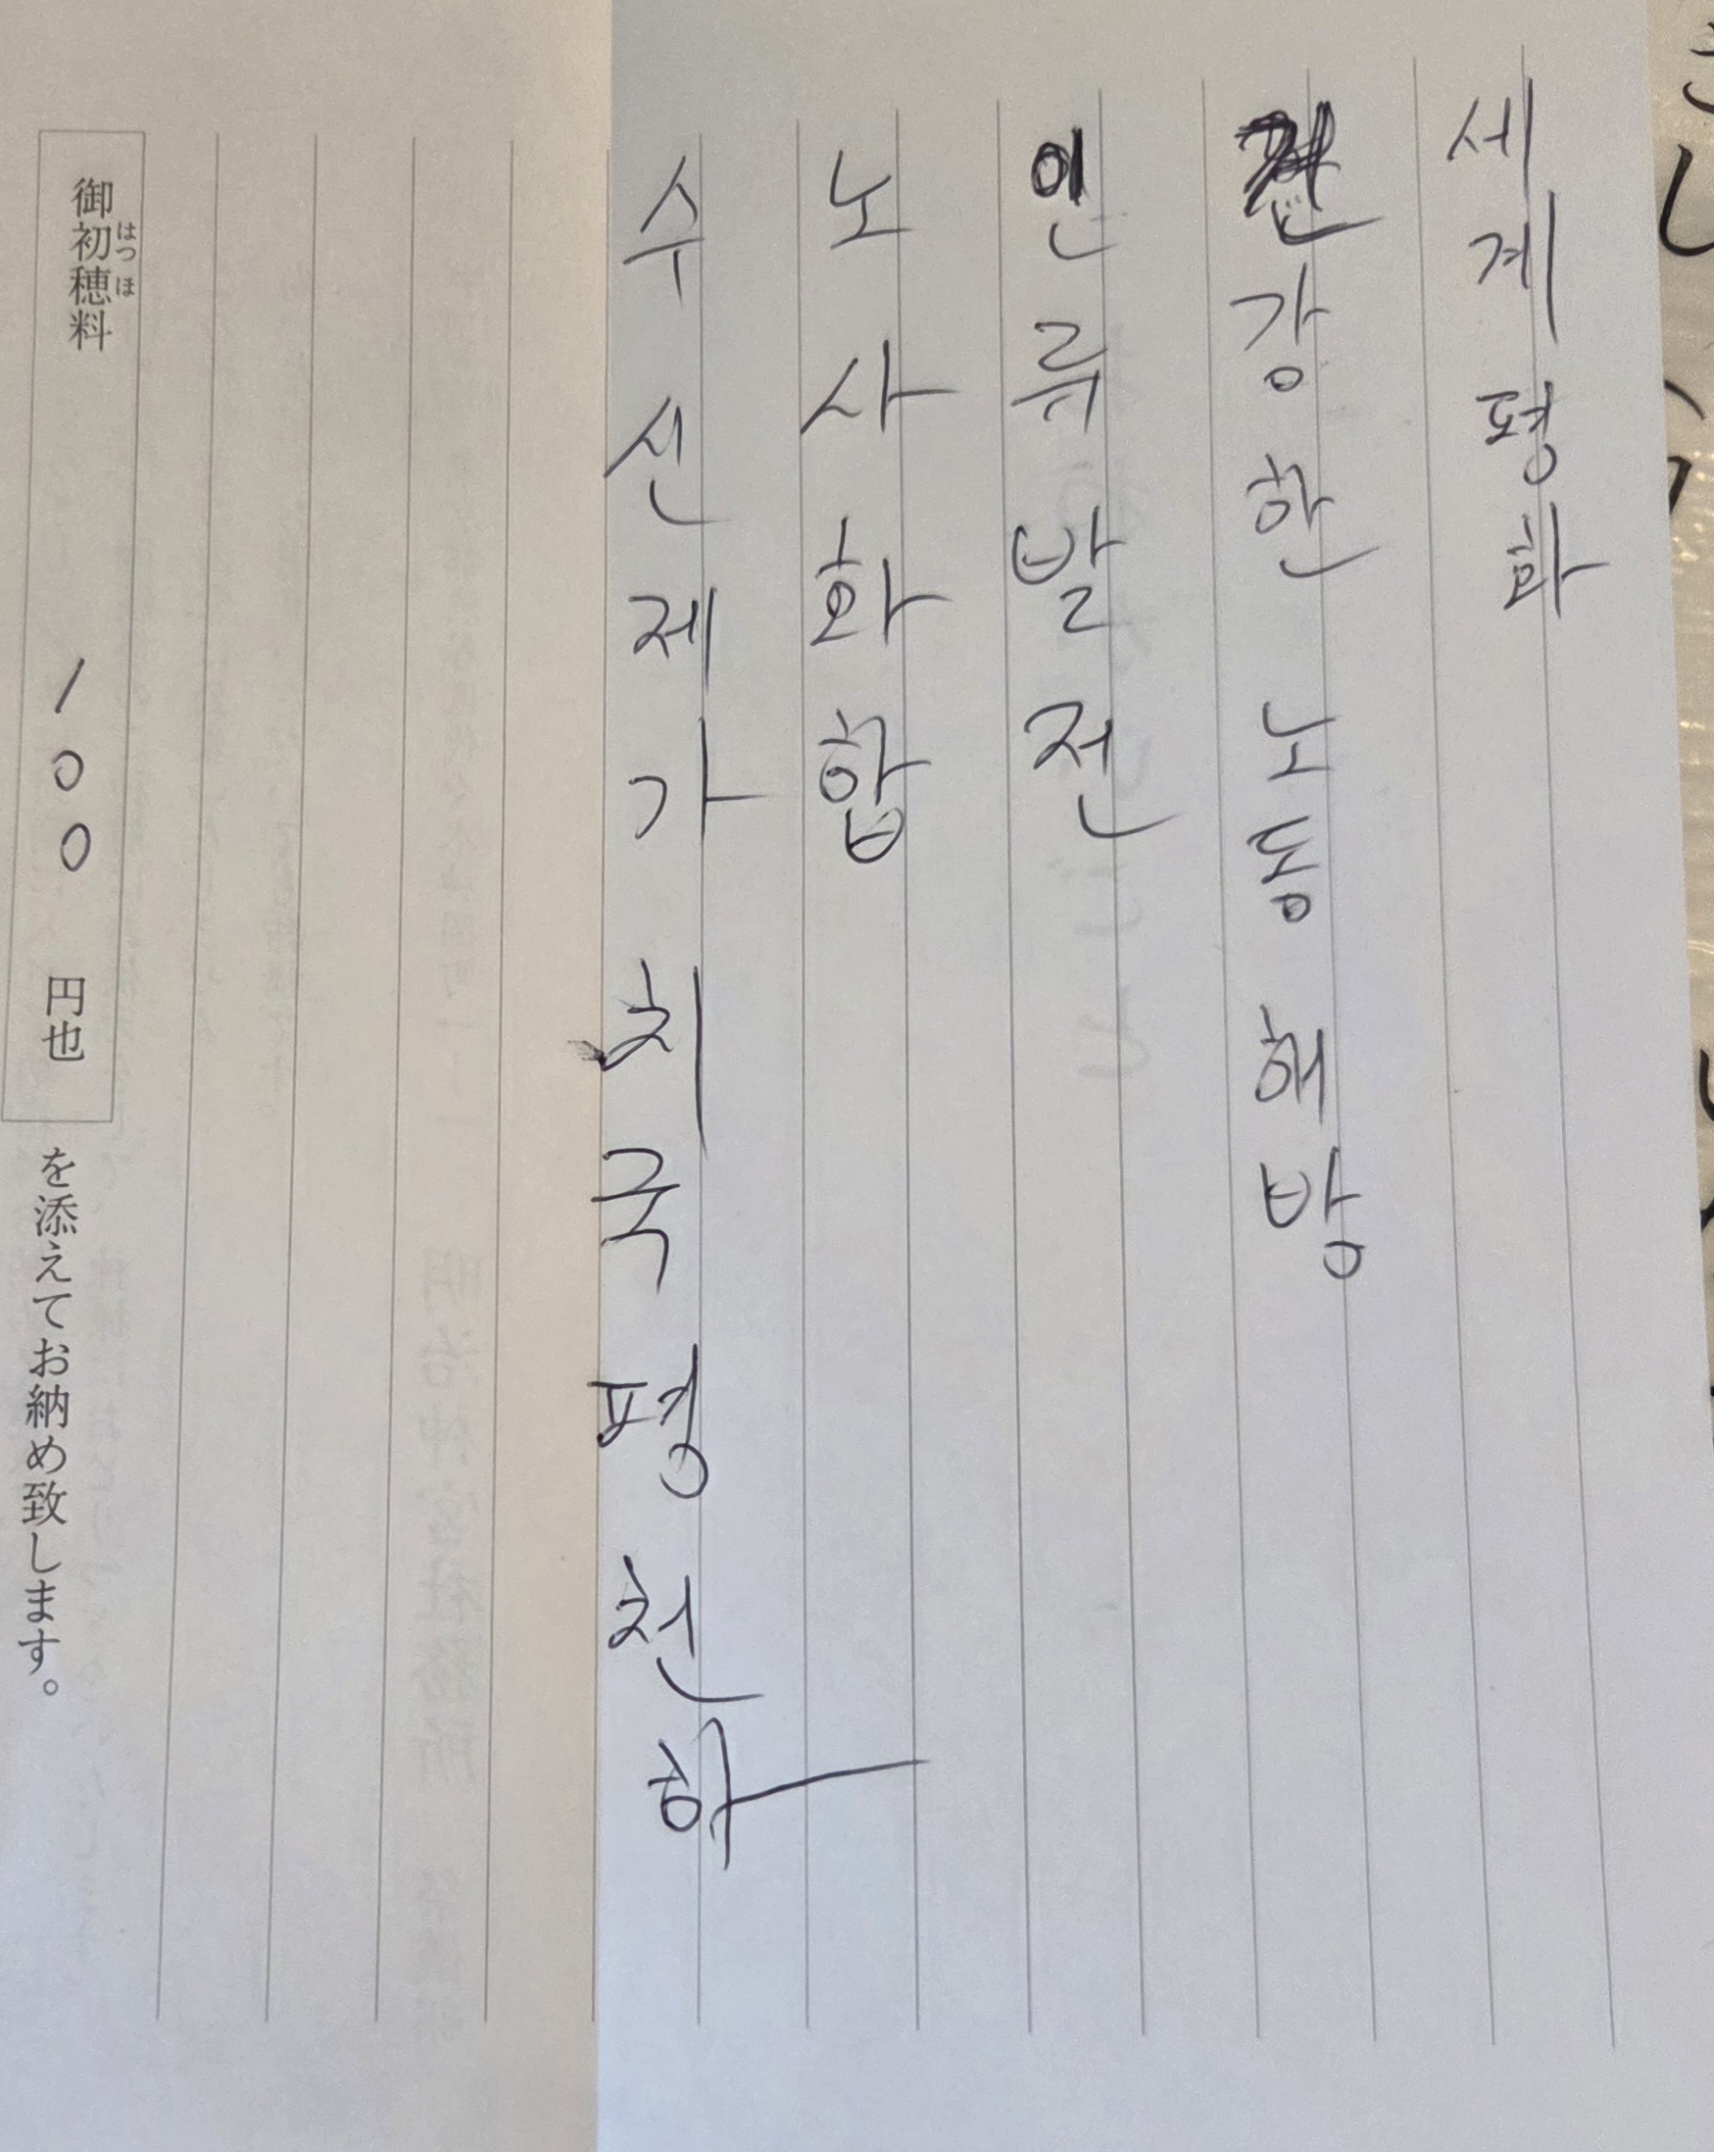 세계평화
건강한 노동 해방
인류발전
노사화합
수신제가 치국평천하
御初穂料 100 円也 を添えてお納め致します。
はつほ